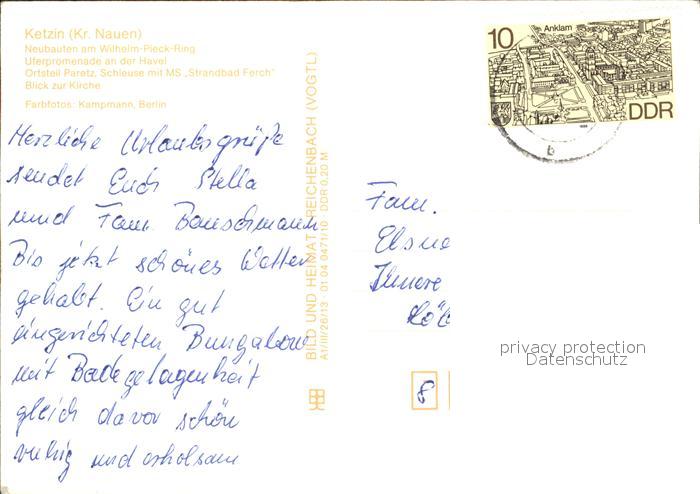 Ketzin (Kr. Nauen)
Neubauten am Wilhelm-Pieck-Ring
Uferpromenade an der Havel
Ortsteil Paretz, Schleuse mit MS „Strandbad Ferch"
Blick zur Kirche
Farbfotos: Kampmann, Berlin
Herzliche Urlaubsgrüße
sendet Euch Stella
und Fam. Bauschmann
Bis jetzt schönes Wetter
gehabt. Ein gut
eingerichteten Bungalow
mit Badegelegenheit
gleich davor schön
ruhig und erholsam
BILD UND HEIMAT REICHENBACH (VOGTL)
A1/III/26/13 01 04 0471/10 DDR 0,20 M
10 Anklam
DDR
b
Fam.
Elsne
Innere
Köt
8
privacy protection
Datenschutz